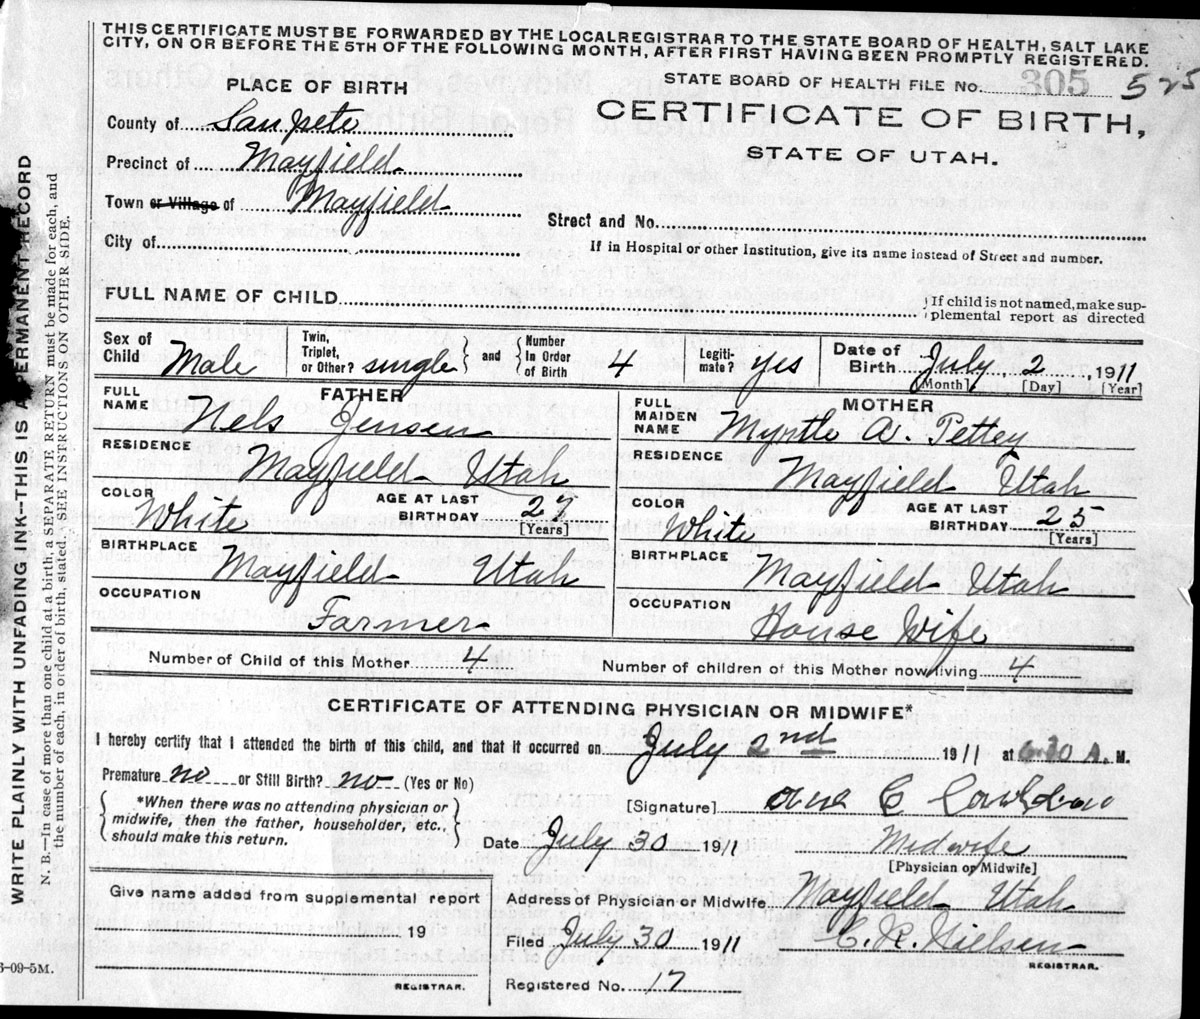 THIS CERTIFICATE MUST BE FORWARDED BY THE LOCAL REGISTRAR TO THE STATE BOARD OF HEALTH, SALT LAKE
CITY, ON OR BEFORE THE 5TH OF THE FOLLOWING MONTH, AFTER FIRST HAVING BEEN PROMPTLY REGISTERED.
STATE BOARD OF HEALTH FILE No. 305 525
PLACE OF BIRTH
CERTIFICATE OF BIRTH,
STATE OF UTAH.
County of Sanpete
Precinct of Mayfield
Town or Village of Mayfield
City of
Street and No.
If in Hospital or other Institution, give its name instead of Street and number.
FULL NAME OF CHILD
If child is not named, make sup-
plemental report as directed
Sex of Child Male
Twin, Triplet, or Other? single and Number In Order of Birth 4
Legiti-mate? yes
Date of Birth July 2 1911
[Month] [Day] [Year]
FATHER
FULL NAME Nels Jensen
RESIDENCE Mayfield Utah
COLOR White
AGE AT LAST BIRTHDAY 27
[Years]
BIRTHPLACE Mayfield Utah
OCCUPATION Farmer
MOTHER
FULL MAIDEN NAME Myrtle A. Pettey
RESIDENCE Mayfield Utah
COLOR White
AGE AT LAST BIRTHDAY 25
[Years]
BIRTHPLACE Mayfield Utah
OCCUPATION House Wife
Number of Child of this Mother 4
Number of children of this Mother now living 4
CERTIFICATE OF ATTENDING PHYSICIAN OR MIDWIFE*
I hereby certify that I attended the birth of this child, and that it occurred on July 2nd 1911 at A. M.
Premature no or Still Birth? no (Yes or No)
*When there was no attending physician or
midwife, then the father, householder, etc.,
should make this return.
[Signature] C
Date July 30 1911
Midwife
[Physician or Midwife]
Address of Physician or Midwife Mayfield Utah
Filed July 30 1911
C. R. Nielsen
REGISTRAR.
Registered No. 17
Give name added from supplemental report
19
REGISTRAR.
WRITE PLAINLY WITH UNFADING INK--THIS IS A PERMANENT RECORD
N. B.--In case of more than one child at a birth, a SEPARATE RETURN must be made for each, and
the number of each, in order of birth, stated. SEE INSTRUCTIONS ON OTHER SIDE.
-09-5M.